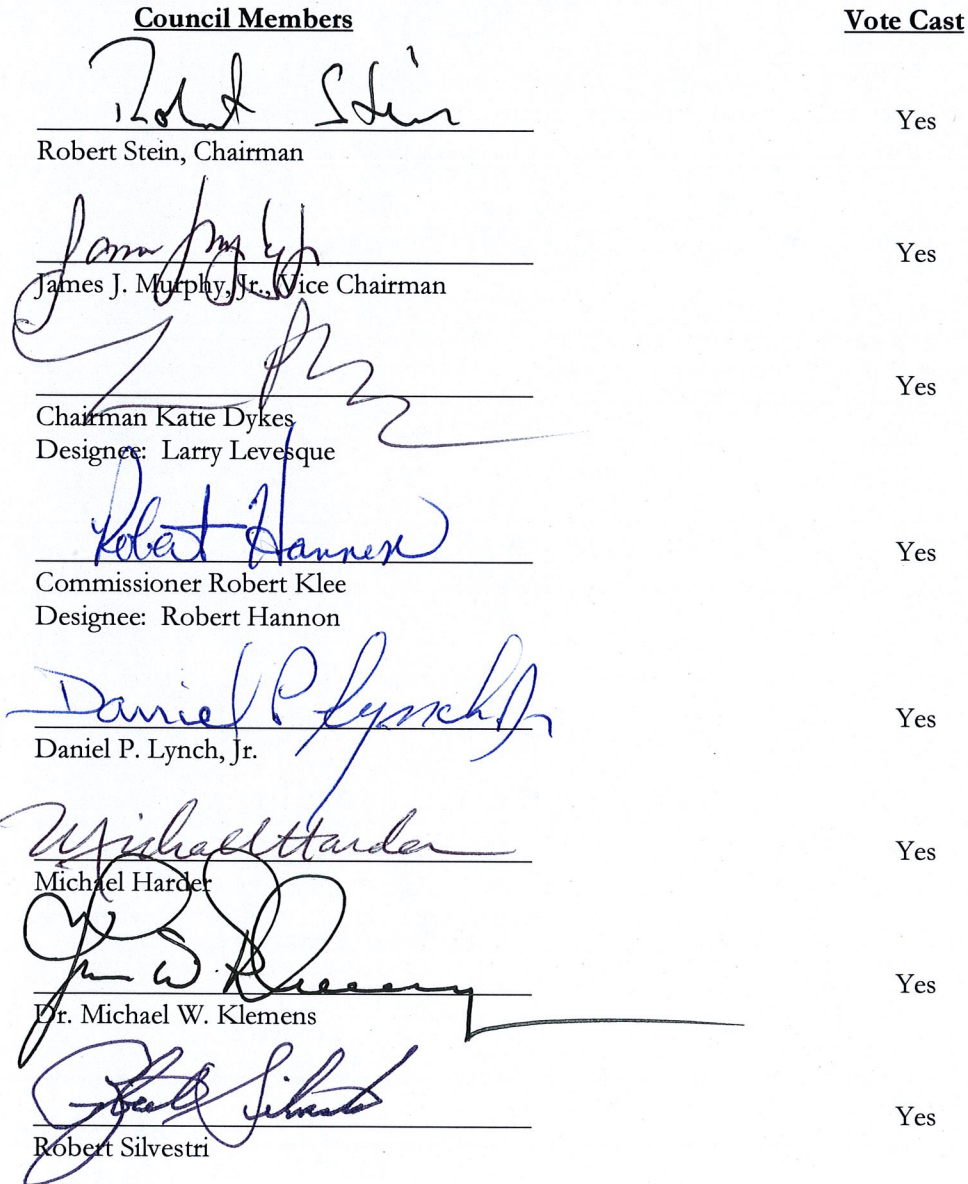 Council Members Vote Cast
Robert Stein
Yes
Robert Stein, Chairman
Yes
James J. Murphy, Jr., Vice Chairman
Yes
Chairman Katie Dykes
Designee: Larry Levesque
Robert Hannon
Yes
Commissioner Robert Klee
Designee: Robert Hannon
Daniel P. Lynch Jr
Yes
Daniel P. Lynch, Jr.
Michael Harder
Yes
Michael Harder
Yes
Dr. Michael W. Klemens
Robert Silvestri
Yes
Robert Silvestri